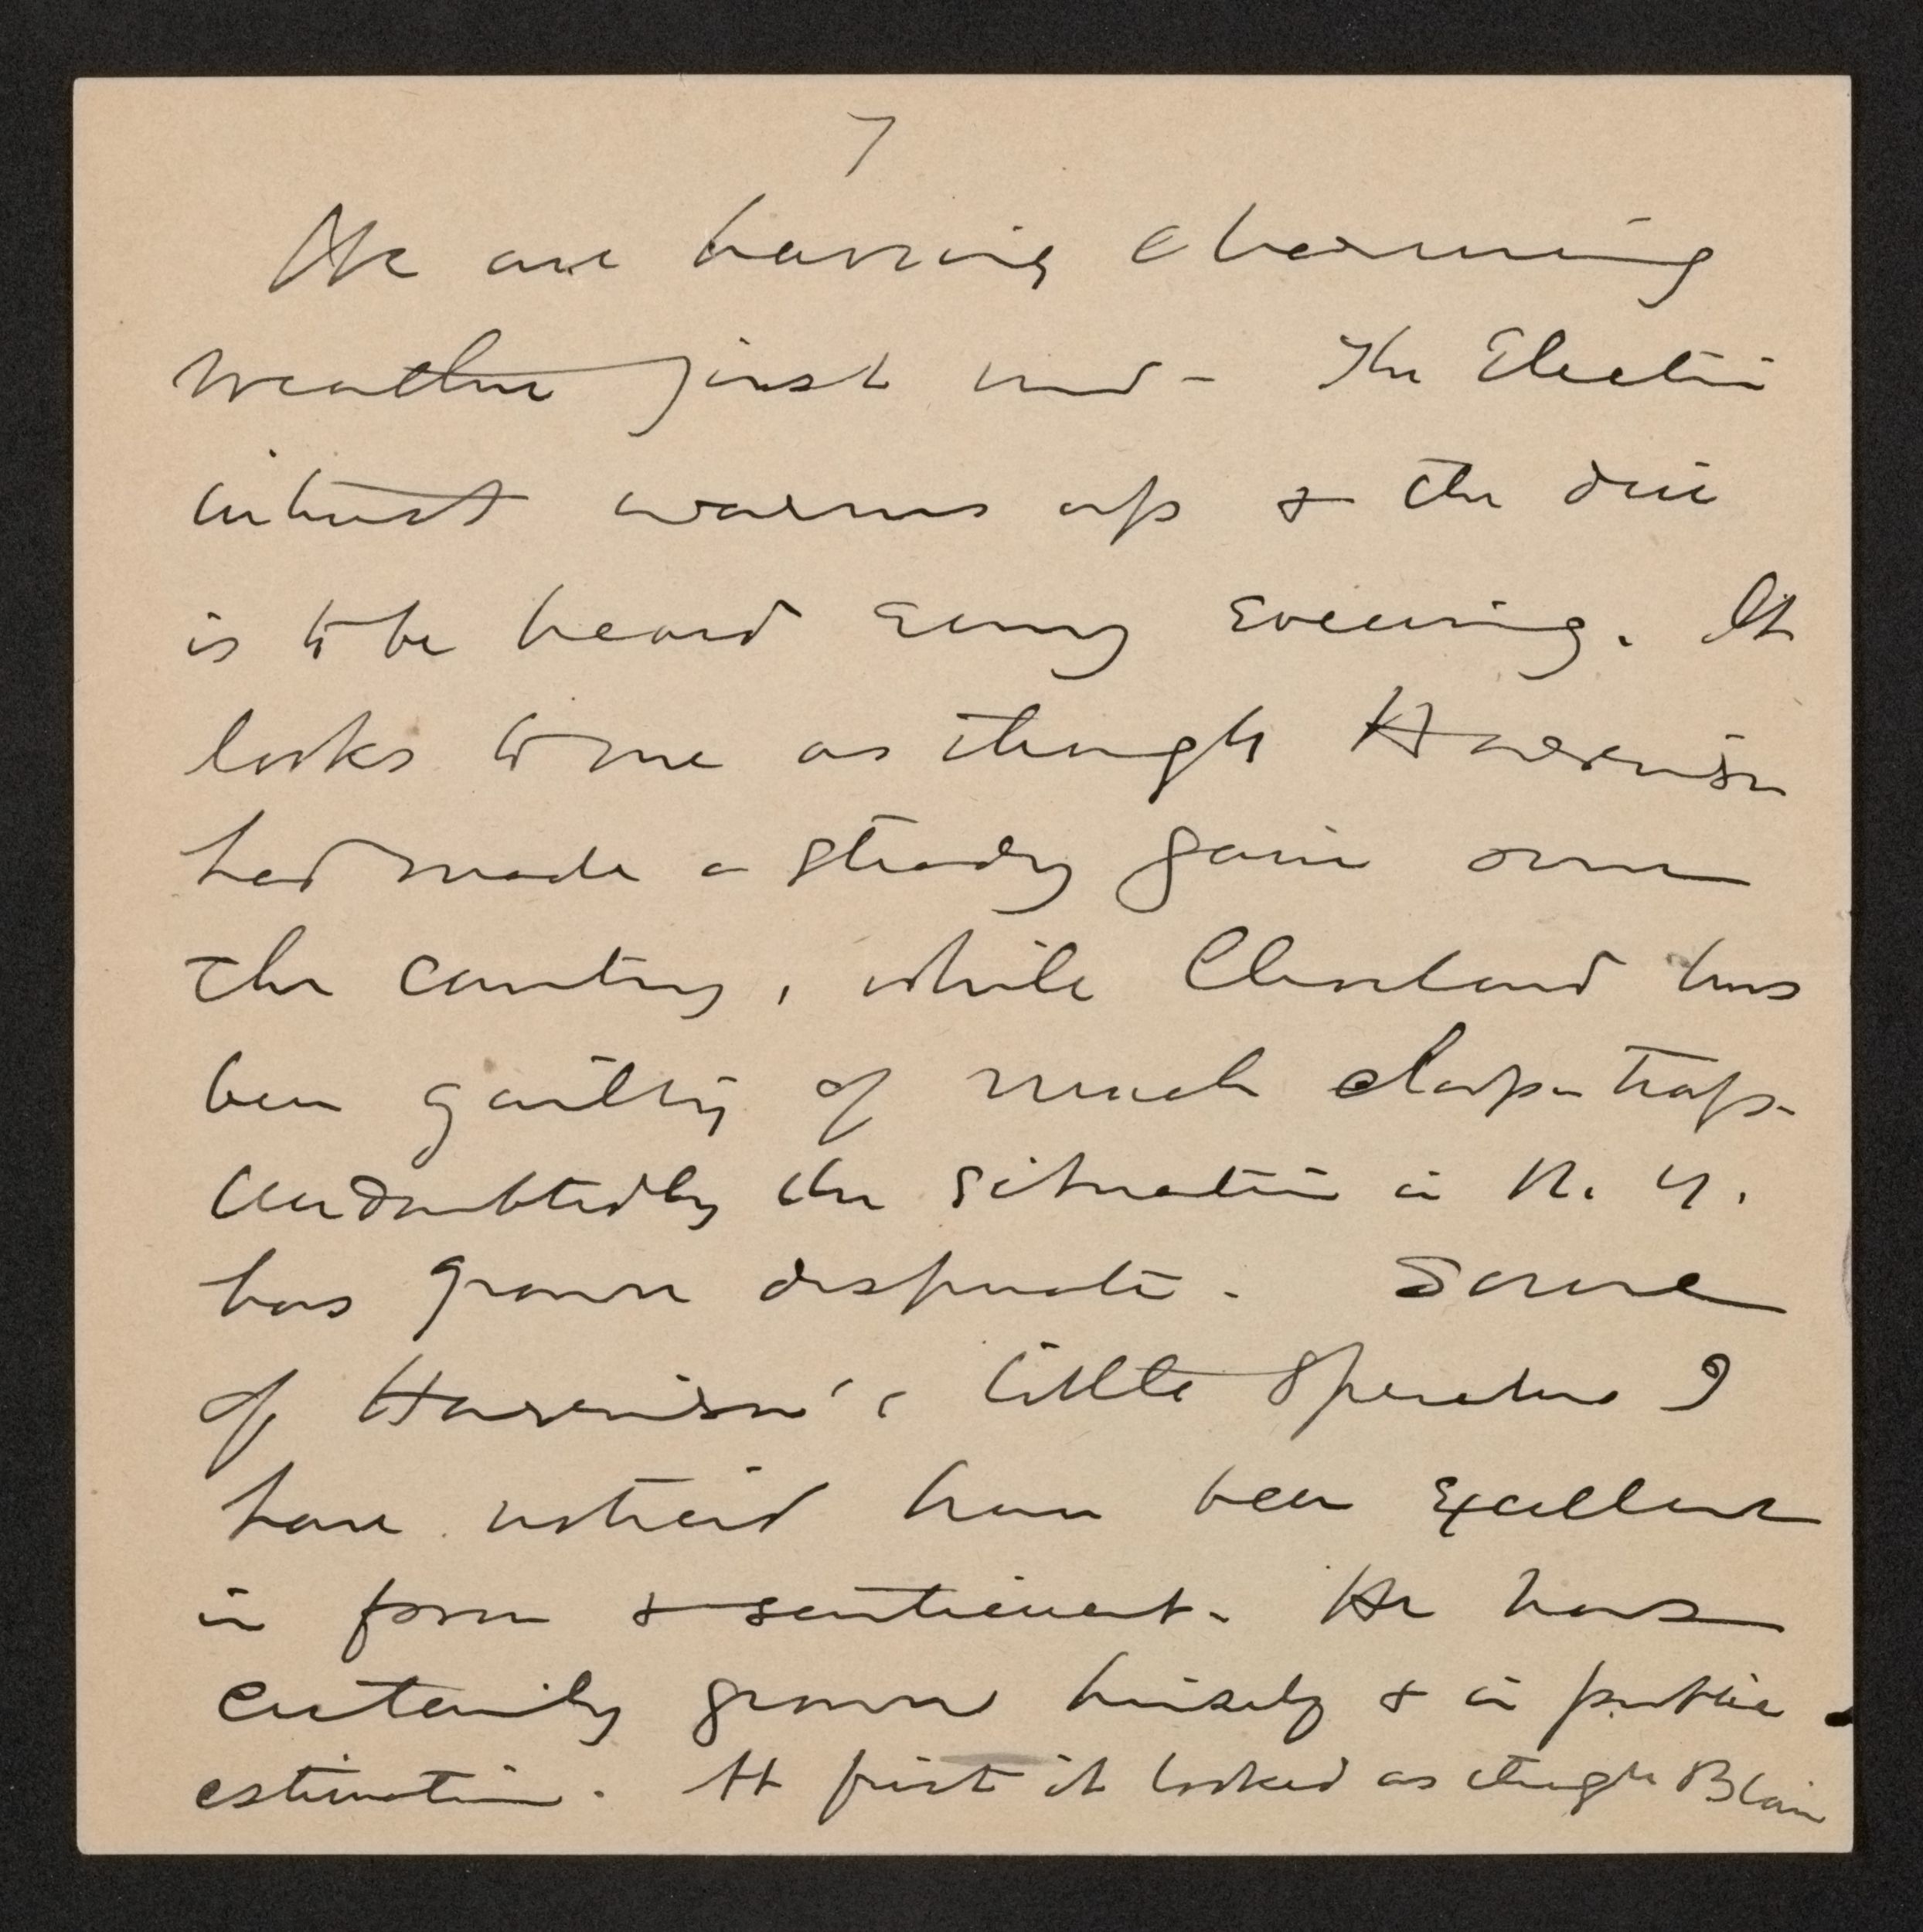 7
We are having charming
weather just now - The Election
interest warms up & the din
is to be heard every evening. It
looks to me as though Harrison
had made a steady gain over
the country, while Cleveland has
been guilty of much clap-trap.
Undoubtedly the situation in N. Y.
has grown desperate. Some
of Harrison's little speeches I
have noticed have been excellent
in form & sentiment. He has
certainly grown himself & in public
estimation. At first it looked as though Blaine